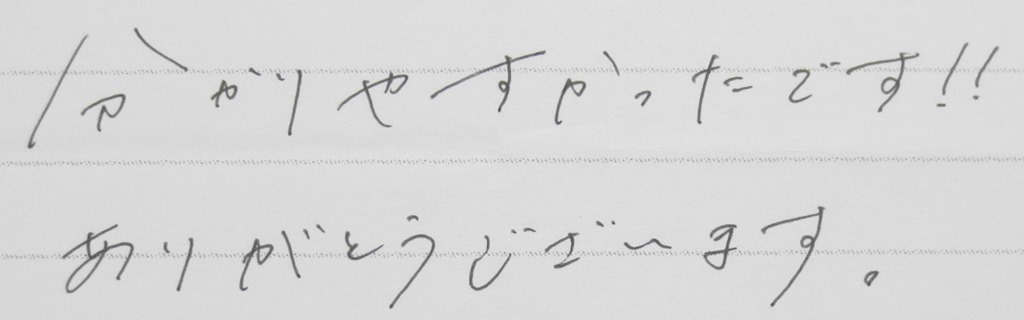 分かりやすかったです!!
ありがとうございます。